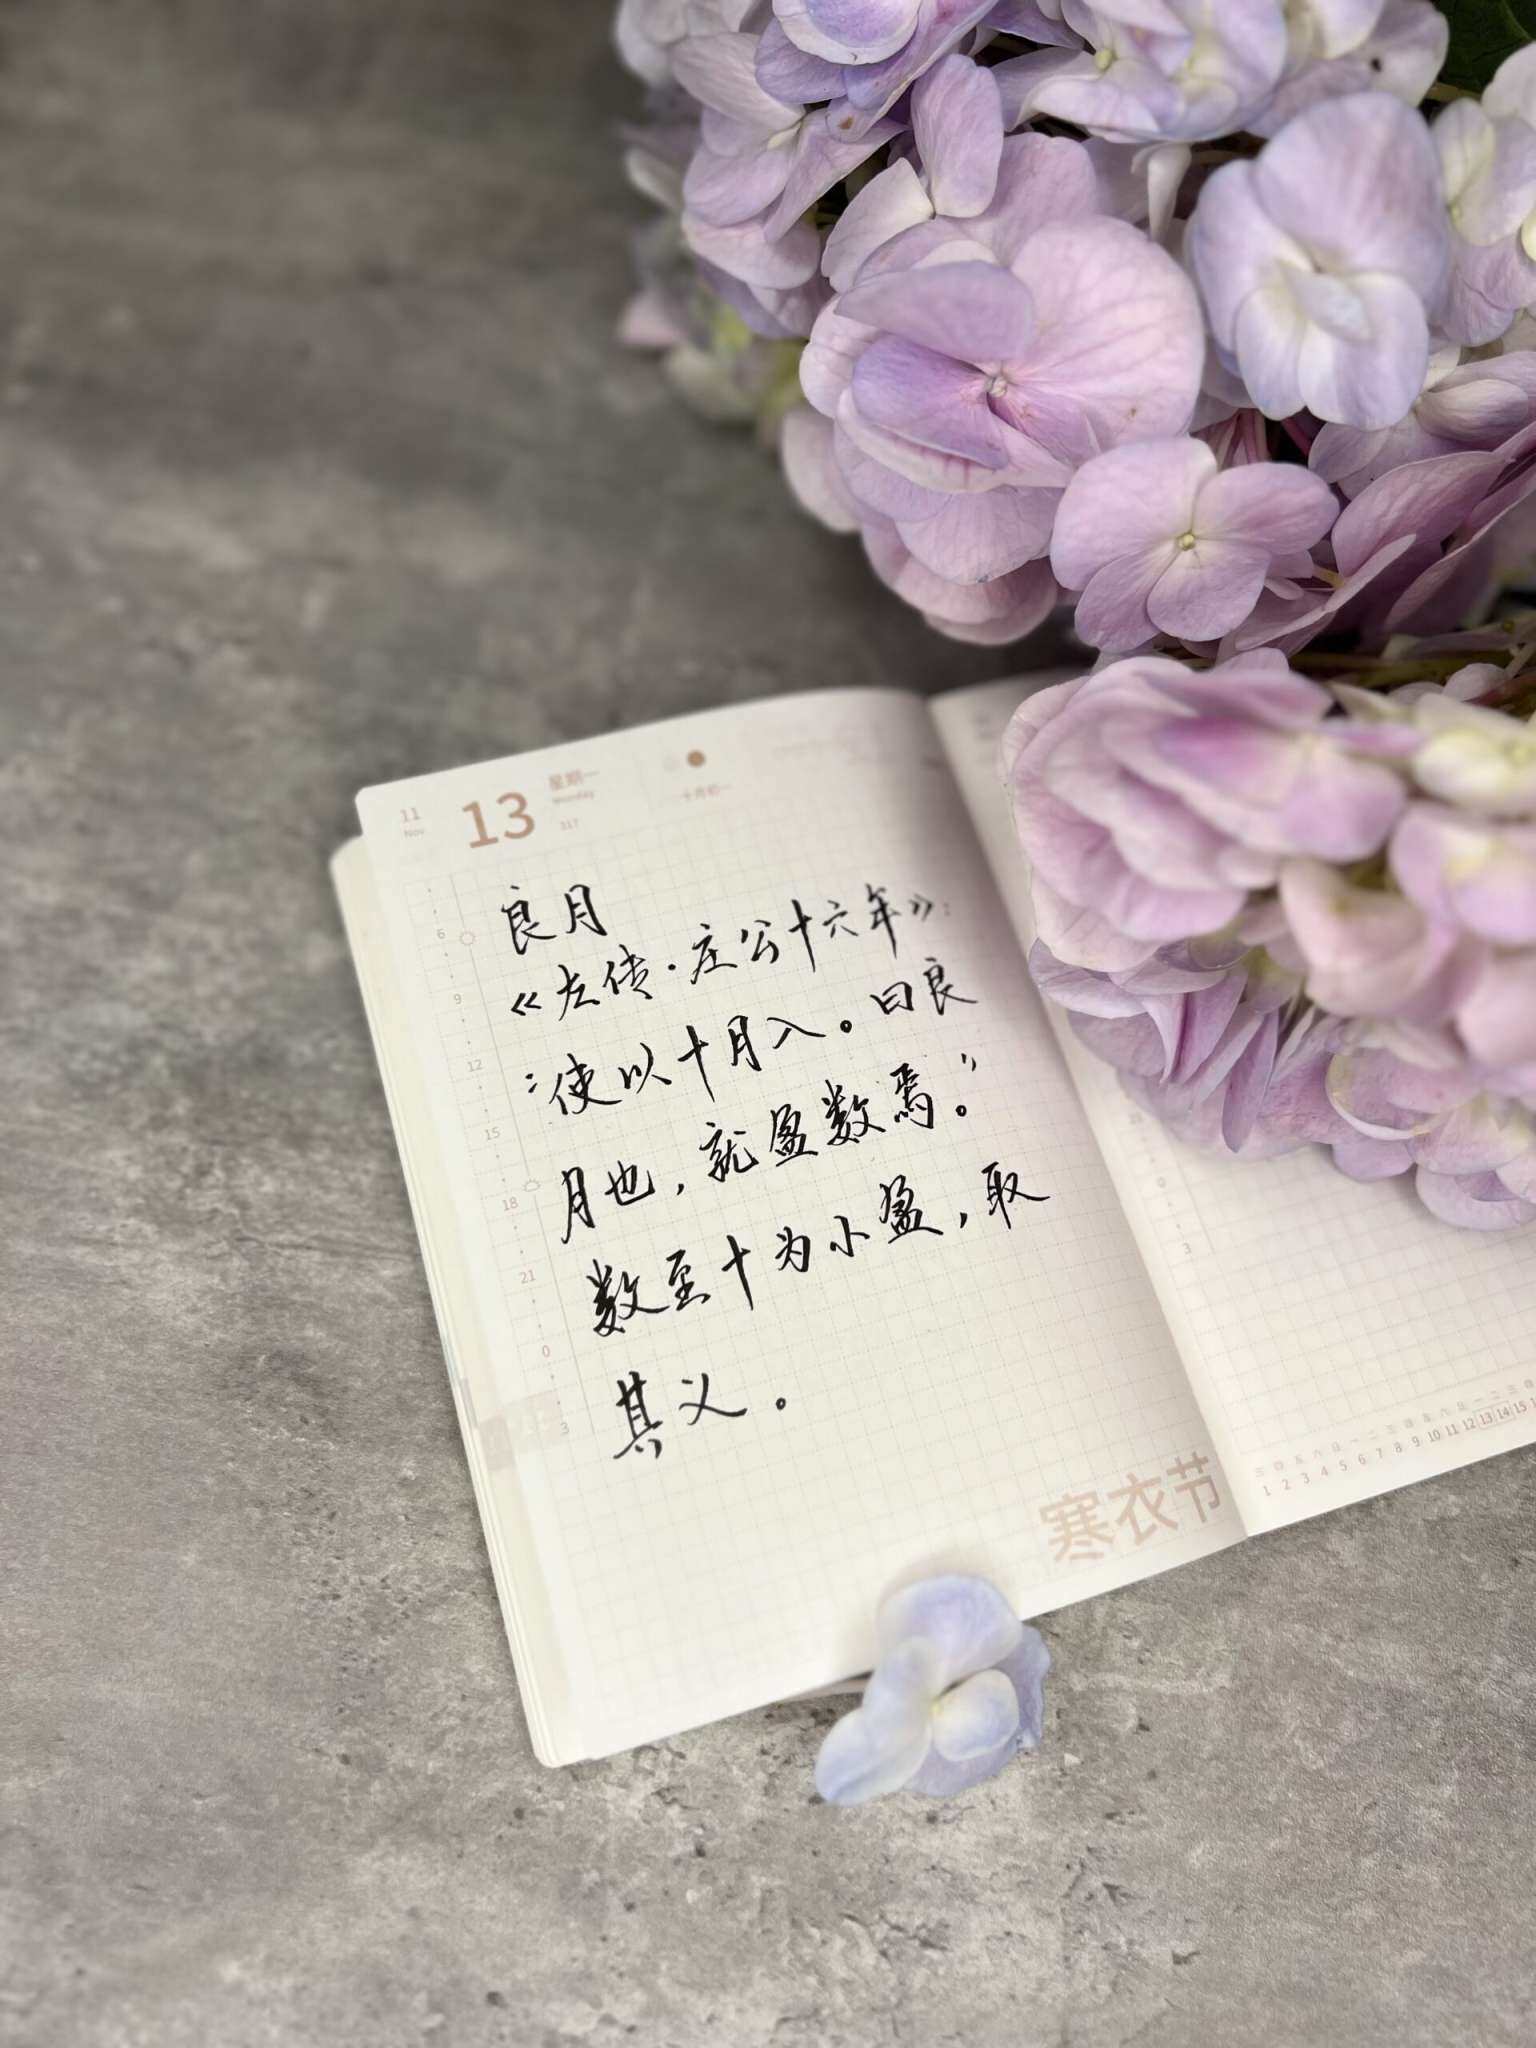 11
Nov
13
星期一
Monday
317
十月初一
良月
《左传·庄公十六年》:
“使以十月入。曰良
月也,就盈数焉。”
数至十为小盈,取
其义。
6
9
12
15
18
21
0
3
寒衣节
0
3
三 四 五 六 日 一 二 三 四 五 六 日 一 二 三 四
1 2 3 4 5 6 7 8 9 10 11 12 13 14 15